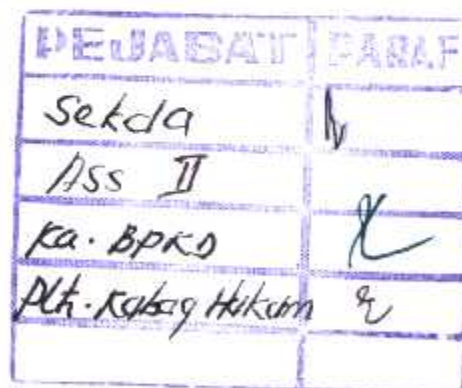 PEJABAT PARAF
Sekda
Ass II
Ka. BPKD
Plh. Kabag Hukum